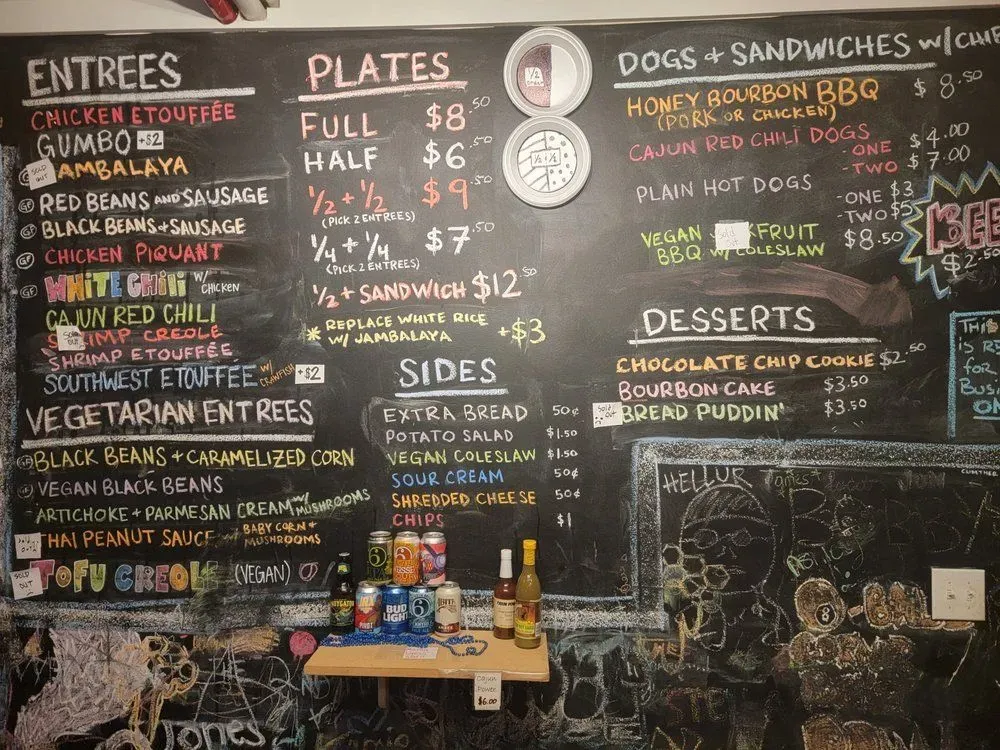 ENTREES
CHICKEN ETOUFFÉE
GUMBO +$2
SOLD OUT
AMBALAYA
GF RED BEANS AND SAUSAGE
GF BLACK BEANS + SAUSAGE
GF CHICKEN PIQUANT
GF WHITE CHILI W/ CHICKEN
CAJUN RED CHILI
SOLD OUT
SHRIMP CREOLE
SHRIMP ETOUFFÉE
SOUTHWEST ETOUFFÉE W/ CRAWFISH +$2
VEGETARIAN ENTREES
GF BLACK BEANS + CARAMELIZED CORN
GF VEGAN BLACK BEANS
ARTICHOKE + PARMESAN CREAM W/ MUSHROOMS
SOLD OUT
THAI PEANUT SAUCE W/ BABY CORN + MUSHROOMS
SOLD OUT
TOFU CREOLE (VEGAN)
PLATES
FULL $8.50
HALF $6.50
1/2 + 1/2 $9.50
(PICK 2 ENTREES)
1/4 + 1/4 $7.50
(PICK 2 ENTREES)
1/2 + SANDWICH $12.50
* REPLACE WHITE RICE
W/ JAMBALAYA +$3
SIDES
EXTRA BREAD 50¢
POTATO SALAD $1.50
VEGAN COLESLAW $1.50
SOUR CREAM 50¢
SHREDDED CHEESE 50¢
CHIPS $1
1/2
DOGS + SANDWICHES W/CHIP
HONEY BOURBON BBQ $8.50
(PORK OR CHICKEN)
CAJUN RED CHILI DOGS
-ONE $4.00
-TWO $7.00
PLAIN HOT DOGS
-ONE $3
-TWO $5
VEGAN KFRUIT $8.50
Sold out
BBQ W/ COLESLAW
BEE
$2.50
DESSERTS
CHOCOLATE CHIP COOKIE $2.50
BOURBON CAKE $3.50
Sold out
BREAD PUDDIN' $3.50
THIS
IS RE
FOR
BUS
ON
HELLUR
BUD LIGHT
Cajun
Power
$6.00
Jones